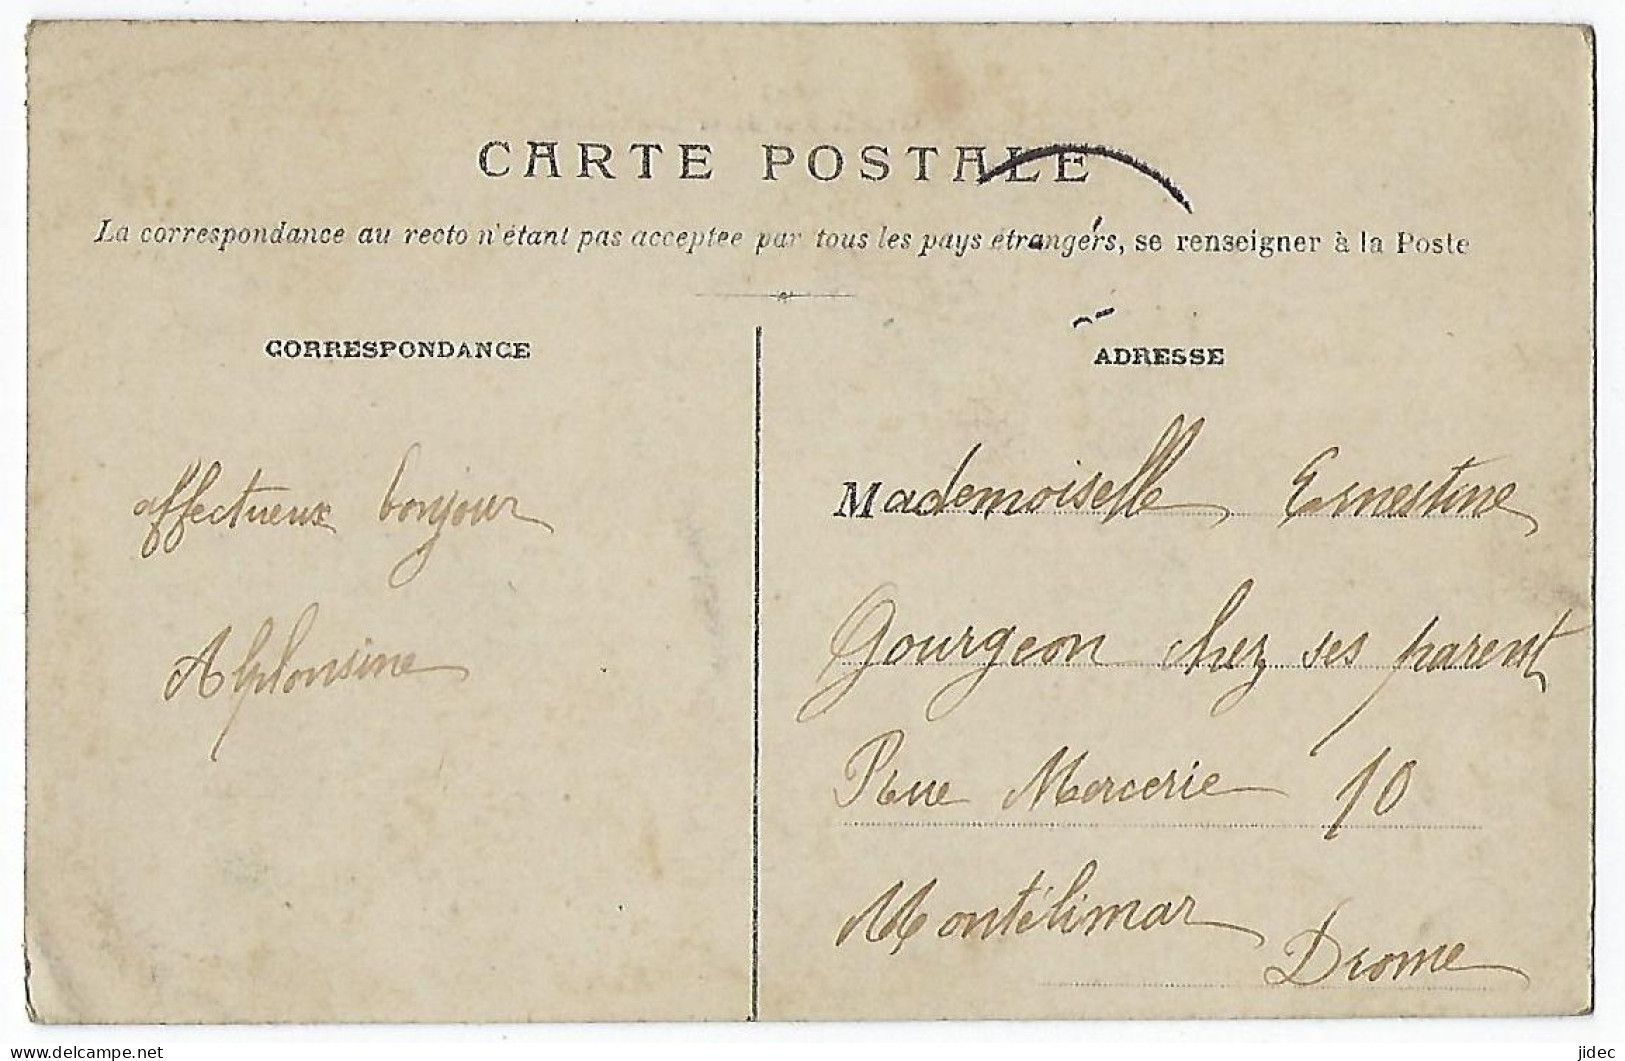 CARTE POSTALE
La correspondance au recto n'étant pas acceptée par tous les pays étrangers, se renseigner à la Poste
CORRESPONDANCE
affectueux bonjour
Alphonsine
ADRESSE
Mademoiselle Ernestine
Gourgeon chez ses parent
Rue Mercerie 10
Montélimar
Drome
delcampe.net
jidec